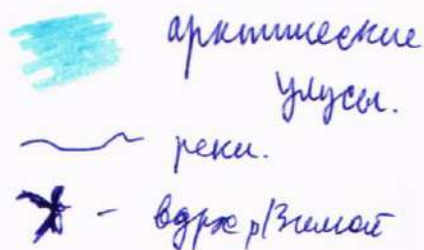 арктические
улусы.
реки.
- вдрхр/Зимой